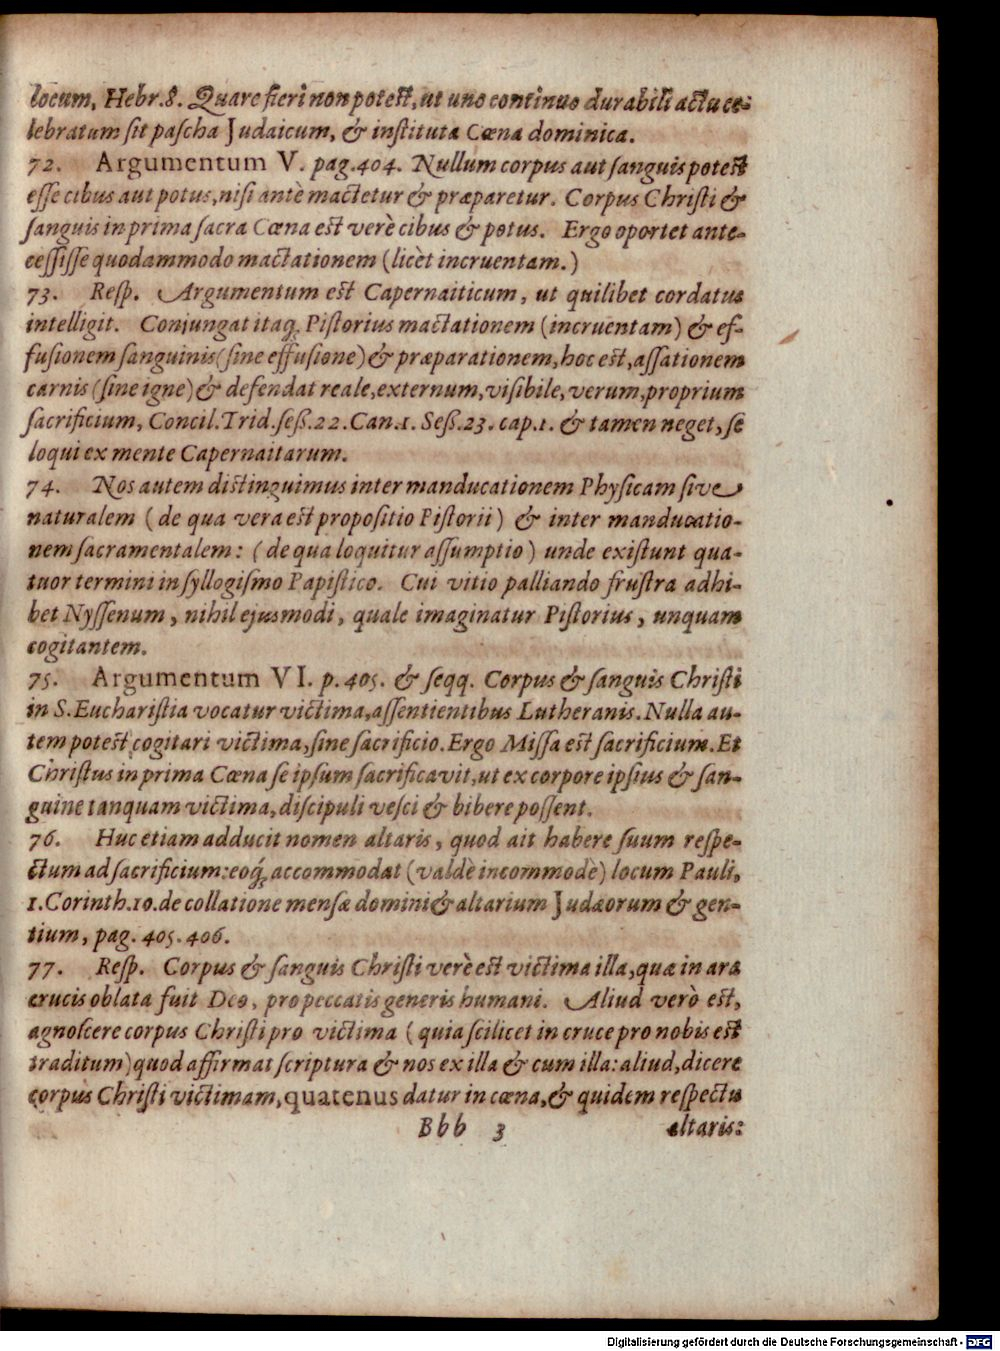 locum, Hebr. 8. Quare fieri non potest, ut uno continuo durabili actu ce-
lebratum sit pascha Judaicum, & instituta Cœna dominica.
72. Argumentum V. pag. 404. Nullum corpus aut sanguis potest
esse cibus aut potus, nisi antè mactetur & præparetur. Corpus Christi &
sanguis in prima sacra Cœna est verè cibus & potus. Ergo oportet ante-
cessisse quodammodo mactationem (licèt incruentam.)
73. Resp. Argumentum est Capernaiticum, ut quilibet cordatus
intelligit. Conjungat itaq; Pistorius mactationem (incruentam) & ef-
fusionem sanguinis (sine effusione) & præparationem, hoc est, assationem
carnis (sine igne) & defendat reale, externum, visibile, verum, proprium
sacrificium, Concil. Trid. seß. 22. Can. 1. Seß. 23. cap. 1. & tamen neget, se
loqui ex mente Capernaitarum.
74. Nos autem distinguimus inter manducationem Physicam sive
naturalem (de qua vera est propositio Pistorii) & inter manducatio-
nem sacramentalem: (de qua loquitur assumptio) unde existunt qua-
tuor termini in syllogismo Papistico. Cui vitio palliando frustra adhi-
bet Nyssenum, nihil ejusmodi, quale imaginatur Pistorius, unquam
cogitantem.
75. Argumentum VI. p. 405. & seqq. Corpus & sanguis Christi
in S. Eucharistia vocatur victima, assentientibus Lutheranis. Nulla au-
tem potest cogitari victima, sine sacrificio. Ergo Missa est sacrificium. Et
Christus in prima Cœna se ipsum sacrificavit, ut ex corpore ipsius & san-
guine tanquam victima, discipuli vesci & bibere possent.
76. Huc etiam adducit nomen altaris, quod ait habere suum respe-
ctum ad sacrificium: eoq́; accommodat (valdè incommodè) locum Pauli,
1. Corinth. 10. de collatione mensæ domini & altarium Judæorum & gen-
tium, pag. 405. 406.
77. Resp. Corpus & sanguis Christi verè est victima illa, quæ in ara
crucis oblata fuit Deo, pro peccatis generis humani. Aliud verò est,
agnoscere corpus Christi pro victima (quia scilicet in cruce pro nobis est
traditum) quod affirmat scriptura & nos ex illa & cum illa: aliud, dicere
corpus Christi victimam, quatenus datur in cœna, & quidem respectu
Bbb 3 altaris:
Digitalisierung gefördert durch die Deutsche Forschungsgemeinschaft - DFG